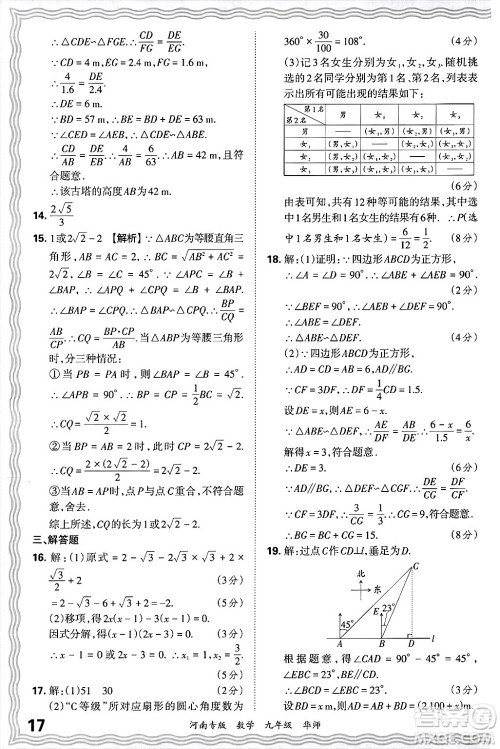 ∴△CDE∽△FGE.∴CD/FG=DE/EG.
∴4/1.6=DE/2.4.
∴DE=6 m.
∵BD=57 m,∴BE=63 m.
∵∠CED=∠AEB,∴△CDE∽△ABE.
∴CD/AB=DE/EB.∴4/AB=6/63.∴AB=42 m,且符合题意.
∴该古塔的高度AB为42 m.
14. 2√5/3
15. 1或2√2-2 【解析】∵△ABC为等腰直角三
角形,AB=AC=2,∴BC=√(AB²+AC²)=
2√2,∠B=∠C=45°.∵∠APC=∠B+
∠BAP,∴∠APQ+∠CPQ=∠B+∠BAP.
∵∠APQ=45°,∴∠BAP=∠CPQ.∴BP/CQ=
AB/CP.∴CQ=BP·CP/AB.当△ABP为等腰三角形
时,分三种情况:
①当PB=PA时,则∠BAP=∠B=45°.
∴∠APB=90°.∴BP=CP=1/2BC=√2.
∴CQ=√2×√2/2=1.
②当AB=BP=2时,CP=BC-BP=2√2-2.
∴CQ=2×(2√2-2)/2=2√2-2.
③当AB=AP时,点P与点C重合,不符合题意,
舍去.
综上所述,CQ的长为1或2√2-2.
三、解答题
16. 解:(1)原式=2-√3-2√3×2×
√3/2+2 (3分)
=2-√3-6+√3+2=-2. (5分)
(2)移项,得(x-1)(2x-3)-(x-1)=0.
因式分解,得(x-1)(2x-4)=0. (3分)
∴x-1=0或2x-4=0.∴x₁=1,x₂=2.
(5分)
17. 解:(1)51 30 (2分)
(2)“C等级”所对应扇形的圆心角度数为
360°×30/100=108°. (4分)
(3)记3名女生分别为女₁、女₂、女₃,随机挑
选的2名同学分别为第1名、第2名,列表表
示出所有可能出现的结果如下:
第1名 第2名 男 女₁ 女₂ 女₃
男 —— (女₁,男) (女₂,男) (女₃,男)
女₁ (男,女₁) —— (女₂,女₁) (女₃,女₁)
女₂ (男,女₂) (女₁,女₂) —— (女₃,女₂)
女₃ (男,女₃) (女₁,女₃) (女₂,女₃) ——
(6分)
由表可知,共有12种可能的结果,其中选中
1名男生和1名女生的结果有6种.∴P(选
中1名男生和1名女生)=6/12=1/2. (8分)
18. 解:(1)证明:∵四边形ABCD为正方形,
∴∠A=∠D=90°.∴∠ABE+∠AEB=90°.
(2分)
∵∠BEF=90°,∴∠AEB+∠DEF=90°.
∴∠ABE=∠DEF.
∴△ABE∽△DEF. (4分)
(2)∵四边形ABCD为正方形,
∴AD=CD=AB=6,AD∥BC.
∵CF=3DF,∴DF=1/4CD=1.5.
设DE=x,则AE=6-x.
∵△ABE∽△DEF,∴AE/DF=AB/DE.∴(6-x)/1.5=6/x.
解得x=3,符合题意.
∴DE=3. (6分)
∵AD∥BC,∴△DEF∽△CGF.∴DE/CG=DF/CF.
∵CF=3DF,∴3/CG=1/3.∴CG=9. (8分)
19. 解:过点C作CD⊥l,垂足为D.
北
东
45°
23°
A B D l
E
C
根据题意,得∠CAD=90°-45°=45°,
∠BCD=23°,AB=2 100 m.
设BD=x m,则AD=AB+BD=(2 100+x)m.
17
河南专版 数学 九年级 华师